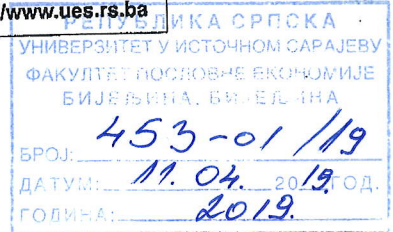 /www.ues.rs.ba
РЕПУБЛИКА СРПСКА
УНИВЕРЗИТЕТ У ИСТОЧНОМ САРАЈЕВУ
ФАКУЛТЕТ ПОСЛОВНЕ ЕКОНОМИЈЕ
БИЈЕЉИНА, БИЈЕЉИНА
БРОЈ: 453-01/19
ДАТУМ: 11.04. 2019. ГОД.
ГОДИНА: 2019.